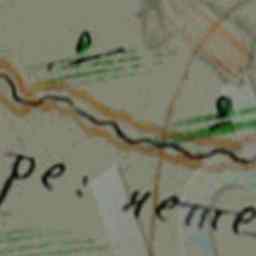 ре: нете